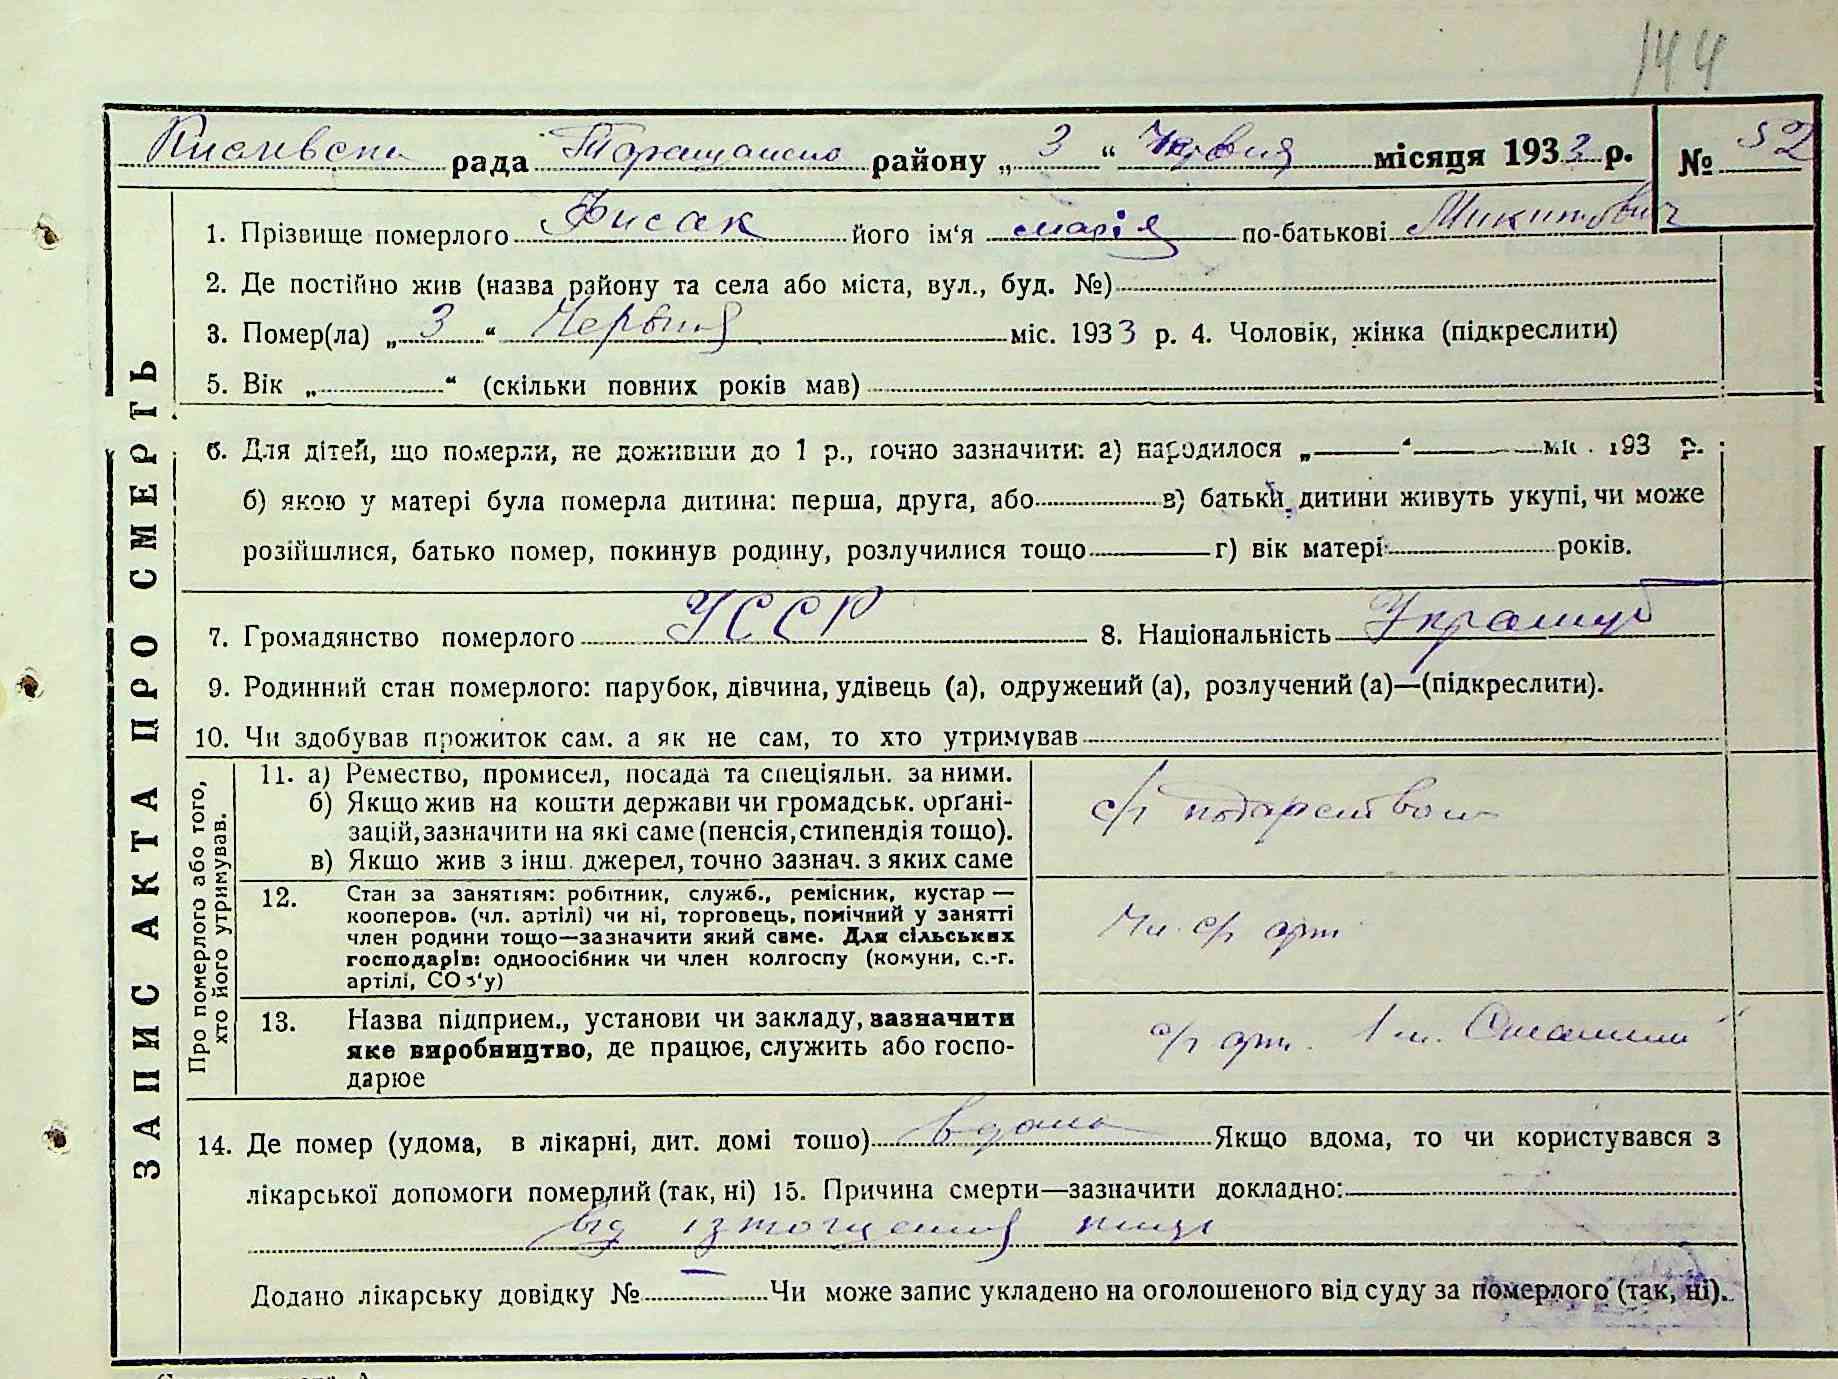 144
рада Таращанско району „ 3 “ Червня місяця 1933 р. № 52
1. Прізвище померлого Лисак його ім‘я марія по-батькові Микитович
2. Де постійно жив (назва району та села або міста, вул., буд. №)
3. Помер(ла) „ 3 “ Червня міс. 1933 р. 4. Чоловік, жінка (підкреслити)
5. Вік „ “ (скільки повних років мав)
6. Для дітей, що померли, не доживши до 1 р., точно зазначити: а) народилося „ “ міс. 193 р.
б) якою у матері була померла дитина: перша, друга, або в) батьки дитини живуть укупі, чи може
розійшлися, батько помер, покинув родину, розлучилися тощо г) вік матері років.
7. Громадянство померлого УССР 8. Національність
9. Родинний стан померлого: парубок, дівчина, удівець (а), одружений (а), розлучений (а)—(підкреслити).
10. Чи здобував прожиток сам, а як не сам, то хто утримував
ЗАПИС АКТА ПРО СМЕРТЬ
Про померлого або того,
хто його утримував.
11. а) Ремество, промисел, посада та спеціяльн. за ними.
б) Якщо жив на кошти держави чи громадськ. орґані-
зацій, зазначити на які саме (пенсія, стипендія тощо).
в) Якщо жив з інш. джерел, точно зазнач. з яких саме
с/г
12. Стан за занятіям: робітник, служб., ремісник, кустар —
кооперов. (чл. артілі) чи ні, торговець, помічний у занятті
член родини тощо—зазначити який саме. Для сільських
господарів: одноосібник чи член колгоспу (комуни, с.-г.
артілі, СОЗ‘у)
Чл. с/г арт.
13. Назва підприєм., установи чи закладу, зазначити
яке виробництво, де працює, служить або госпо-
дарює
с/г арт. Ім. Сталіна
14. Де помер (удома, в лікарні, дит. домі тощо) вдома Якщо вдома, то чи користувався з
лікарської допомоги померлий (так, ні) 15. Причина смерти—зазначити докладно:
від ізтощения
Додано лікарську довідку № — Чи може запис укладено на оголошеного від суду за померлого (так, ні).